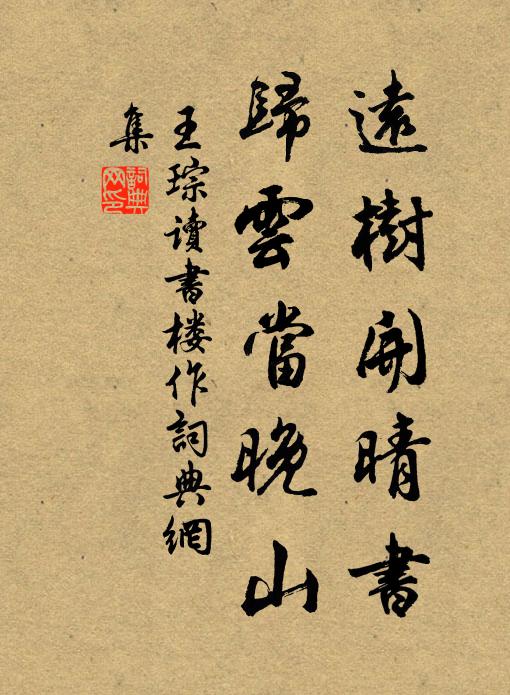 遠樹開晴書
歸雲當晚山
王琮讀書楼作詞典網
集
詞典网印